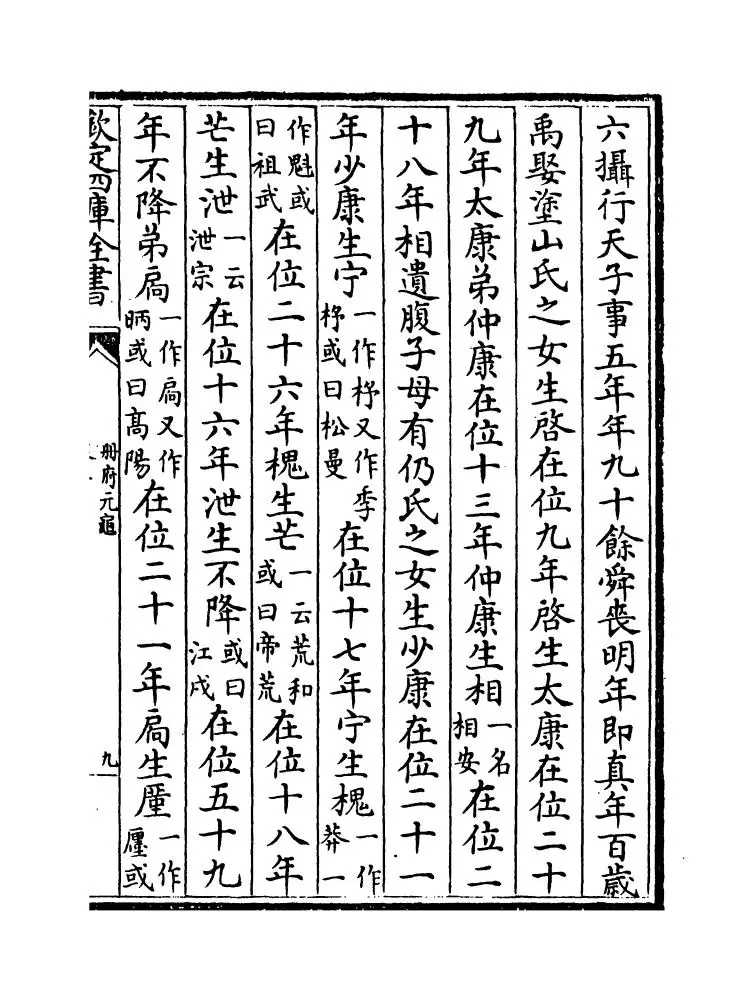 六攝行天子事五年年九十餘舜喪明年即真年百歲
禹娶塗山氏之女生啓在位九年啓生太康在位二十
九年太康弟仲康在位十三年仲康生相一名相安在位二
十八年相遺腹子母有仍氏之女生少康在位二十一
年少康生宁一作杼又作季杼或曰松曼在位十七年宁生槐一作莽一
作魁或曰祖武在位二十六年槐生芒一云荒和或曰帝荒在位十八年
芒生泄一云泄宗在位十六年泄生不降或曰江成在位五十九
年不降弟扃一作扃又作昞或曰髙陽在位二十一年扃生厪一作廑或
欽定四庫全書
冊府元龜
九